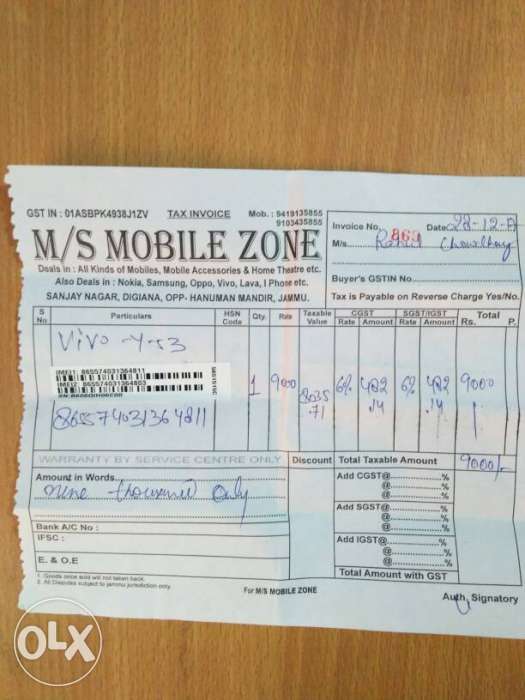 GST IN : 01ASBPK4938J1ZV TAX INVOICE Mob. : 9419135855
9103435855
M/S MOBILE ZONE
Deals in : All Kinds of Mobiles, Mobile Accessories & Home Theatre etc.
Also Deals in : Nokia, Samsung, Oppo, Vivo, Lava, I Phone etc.
SANJAY NAGAR, DIGIANA, OPP- HANUMAN MANDIR, JAMMU.
Invoice No. 863 Date 28-12-17
M/s. Rahul Chowdhary
Buyer's GSTIN No.
Tax is Payable on Reverse Charge Yes/No.
S No Particulars HSN Code Qty. Rate Taxable Value CGST Rate Amount SGST/IGST Rate Amount Total Rs. P.
Vivo Y-53
IMEI1: 865574031364811
IMEI2: 865574031364803
1 9000 8035.71 6% 482.14 6% 482.14 9000
865574031364811
WARRANTY BY SERVICE CENTRE ONLY Discount Total Taxable Amount 9000/-
Amount in Words
Nine thousand only
Add CGST@ %
Add SGST@ %
Add IGST@ %
Total Amount with GST
Bank A/C No :
IFSC :
E. & O.E
1. Goods once sold will not taken back.
2. All Disputes subject to jammu jurisdiction only.
For M/S MOBILE ZONE
Auth. Signatory
OLX